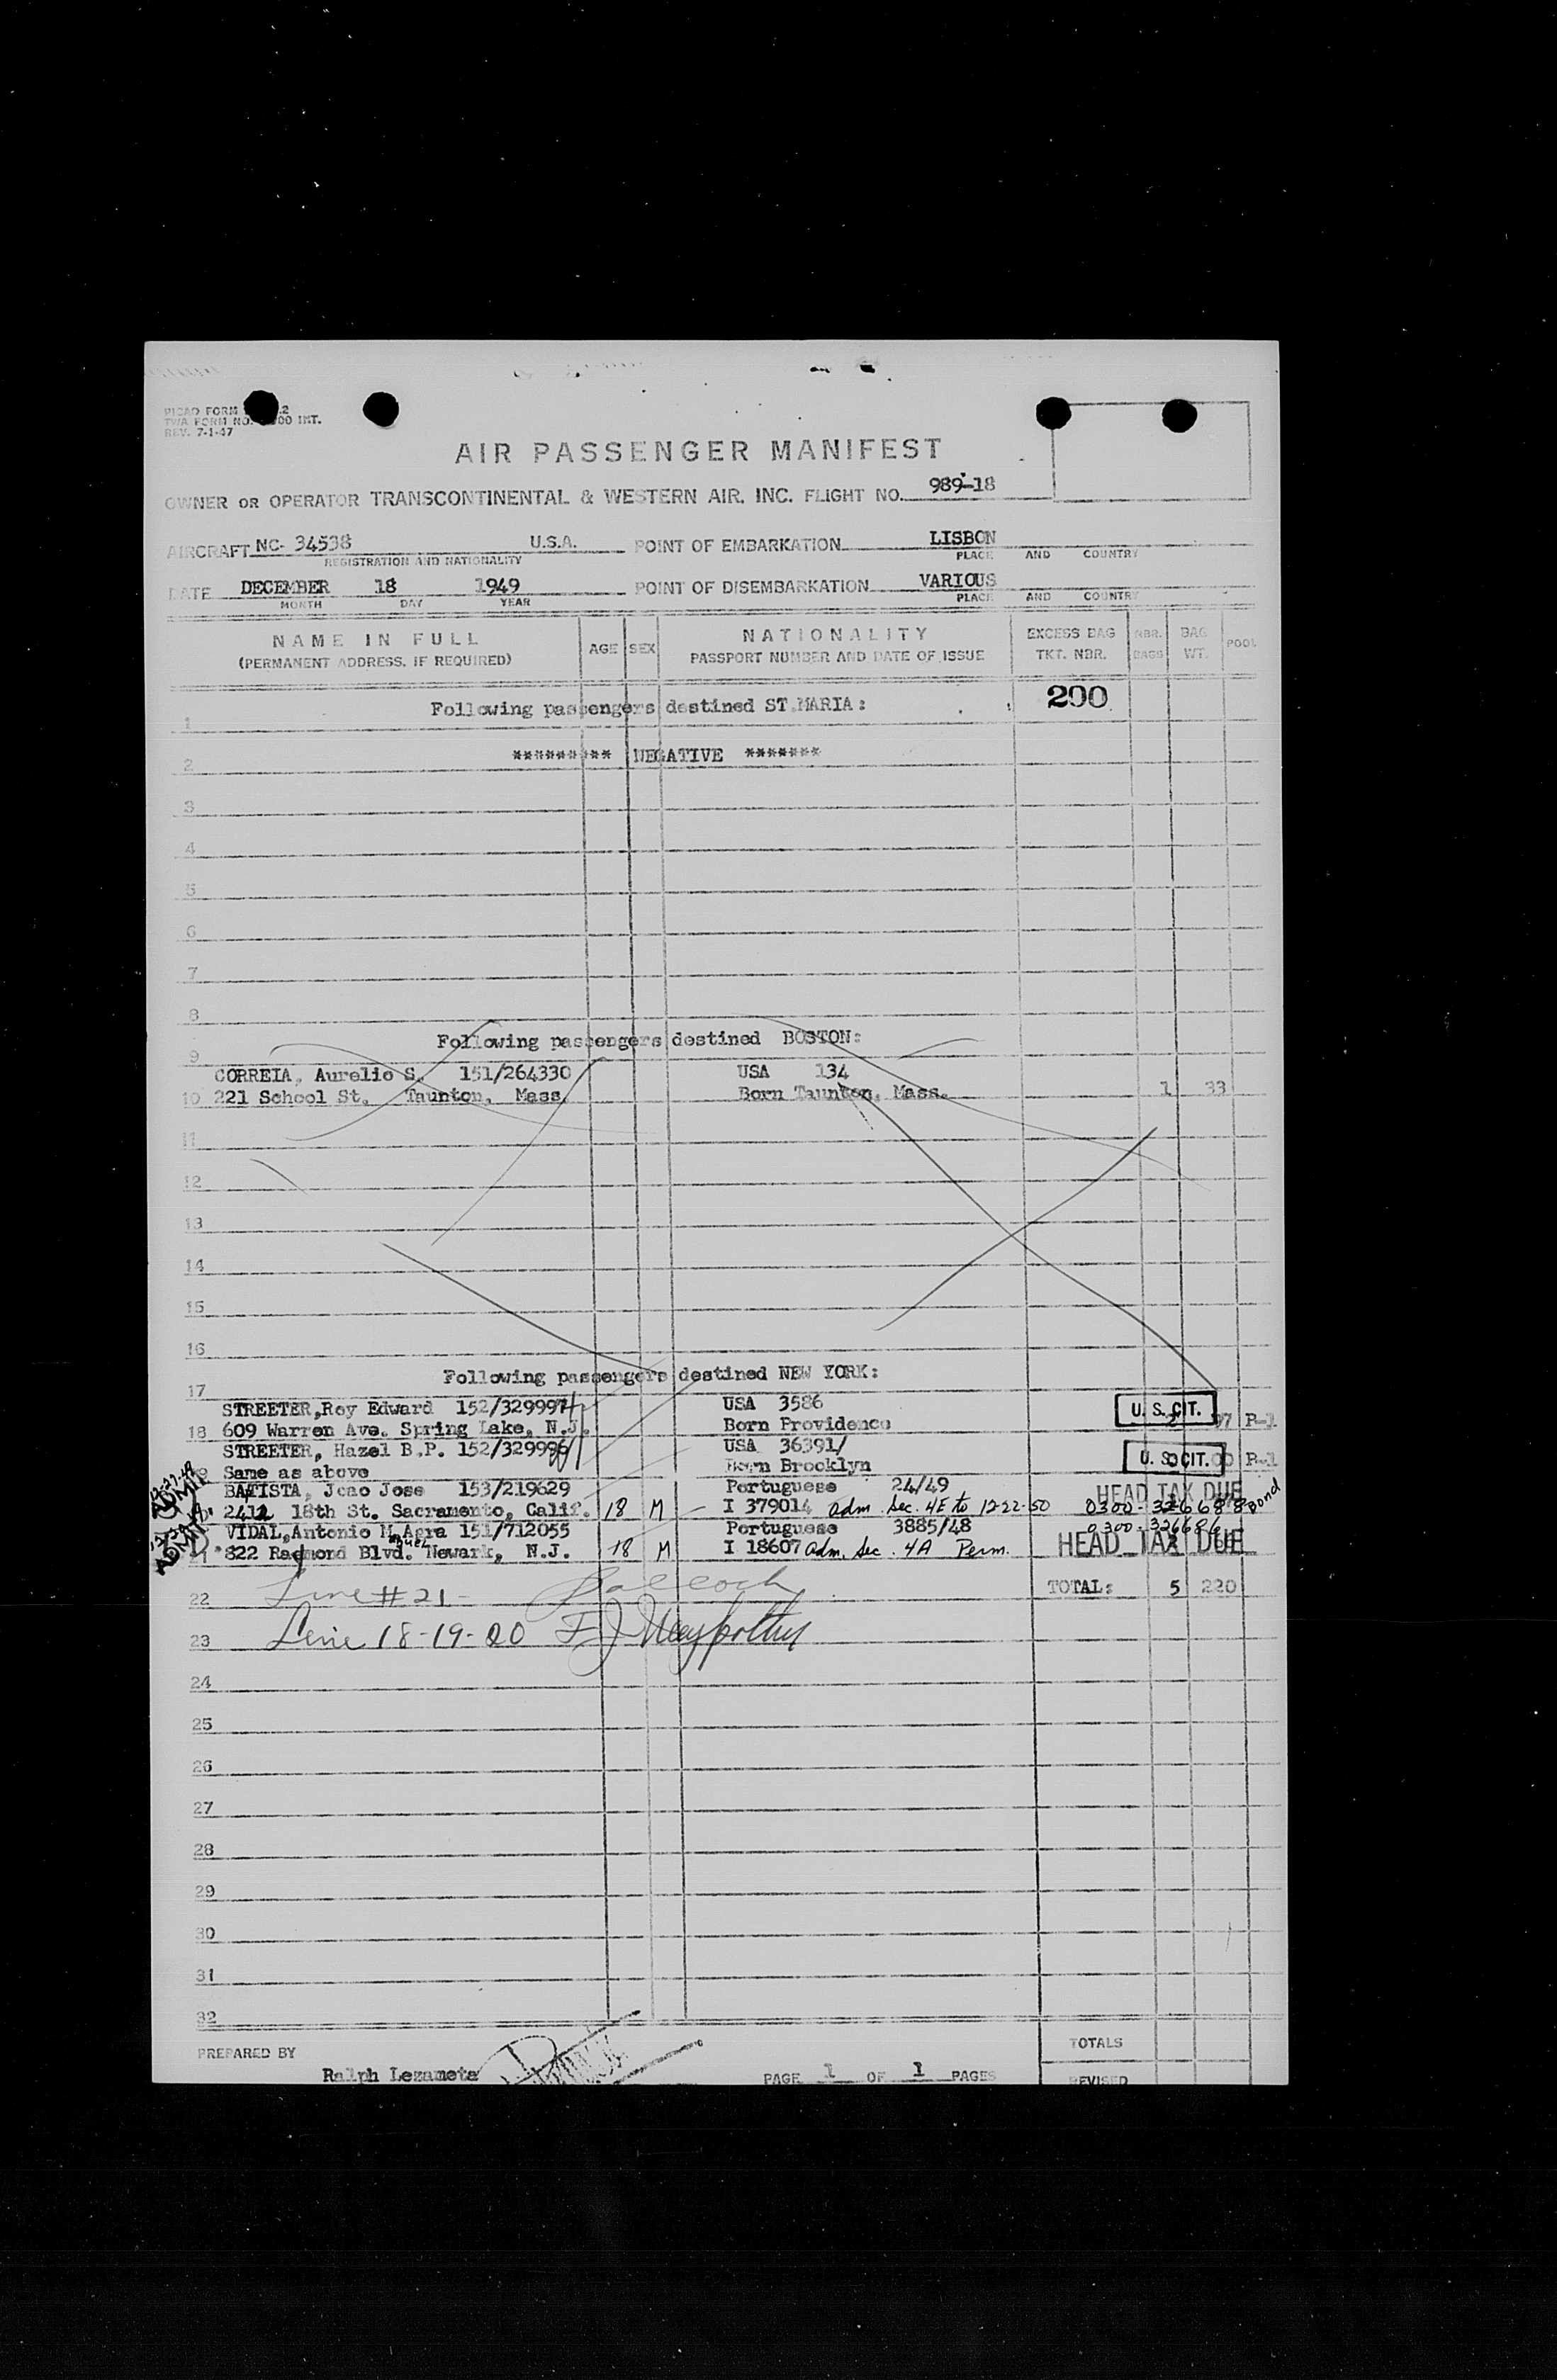 PICAO FORM
TWA FORM NO. 00 INT.
REV. 7-1-47
AIR PASSENGER MANIFEST
OWNER OR OPERATOR TRANSCONTINENTAL & WESTERN AIR. INC. FLIGHT NO. 989-18
AIRCRAFT NC- 34538 U.S.A. POINT OF EMBARKATION LISBON
REGISTRATION AND NATIONALITY PLACE AND COUNTRY
DATE DECEMBER 18 1949 POINT OF DISEMBARKATION VARIOUS
MONTH DAY YEAR PLACE AND COUNTRY
NAME IN FULL AGE SEX NATIONALITY EXCESS BAG NBR. BAG POOL
(PERMANENT ADDRESS, IF REQUIRED) PASSPORT NUMBER AND DATE OF ISSUE TKT. NBR. BAGS WT.
200
1 Following passengers destined ST.MARIA:
2 ********* NEGATIVE *******
3
4
5
6
7
8
9 Following passengers destined BOSTON:
CORREIA, Aurelio S. 151/264330 USA 134
10 221 School St. Taunton, Mass. Born Taunton, Mass. 1 33
11
12
13
14
15
16
17 Following passengers destined NEW YORK:
STREETER,Roy Edward 152/329997 USA 3586
18 609 Warren Ave. Spring Lake, N.J. Born Providence U. S. CIT. 97 R-1
STREETER, Hazel B.P. 152/329996 USA 36391/
Same as above Born Brooklyn U. S. CIT. R-1
BATISTA, Joao Jose 153/219629 Portuguese 24/49 HEAD TAX DUE
2412 18th St. Sacramento, Calif. 18 M I 379014 adm. Sec. 4E to 12-22-50 0300-326688 Bond
VIDAL,Antonio M.Agra 151/712055 Portuguese 3885/48 0300-326686
822 Raymond Blvd. Newark, N.J. 18 M I 18607 adm. Sec. 4A Perm. HEAD TAX DUE
22 Line #21- TOTAL: 5 220
23 Line 18-19-20
24
25
26
27
28
29
30
31
32
PREPARED BY TOTALS
Ralph Lezameta PAGE 1 OF 1 PAGES REVISED